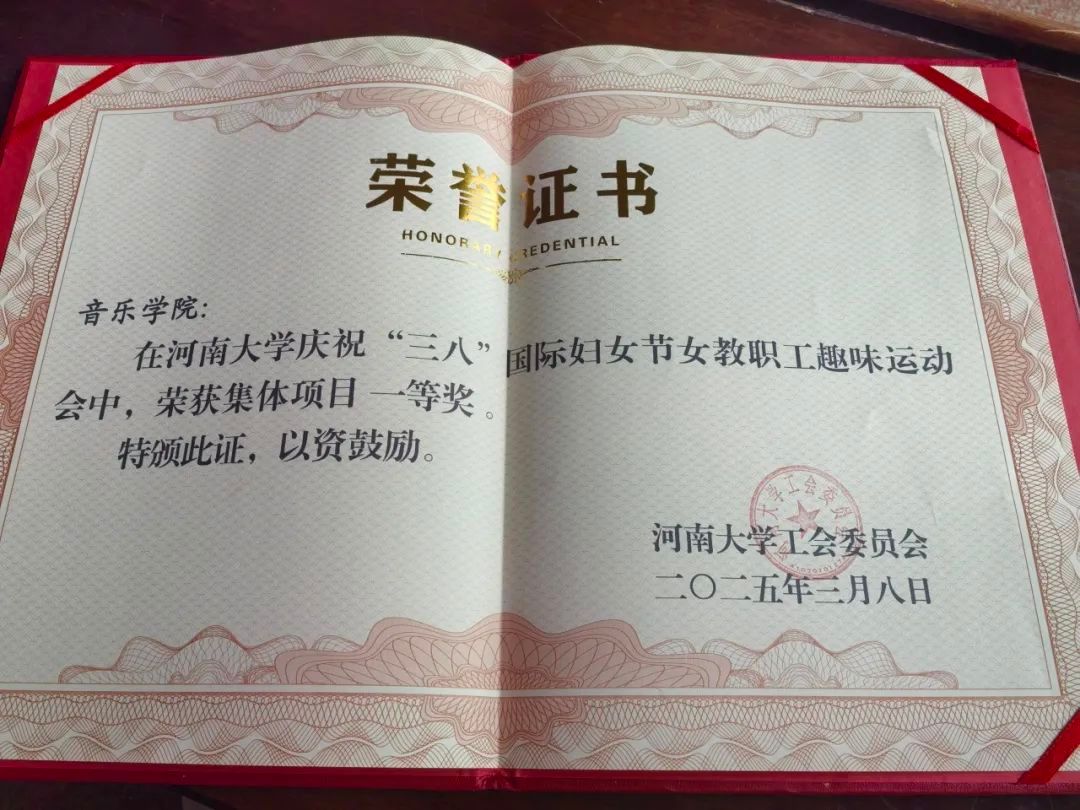 荣誉证书
HONORARY CREDENTIAL
音乐学院：
在河南大学庆祝“三八”国际妇女节女教职工趣味运动
会中，荣获集体项目 一等奖 。
特颁此证，以资鼓励。
大学工会委员会
河南大学工会委员会
二〇二五年三月八日